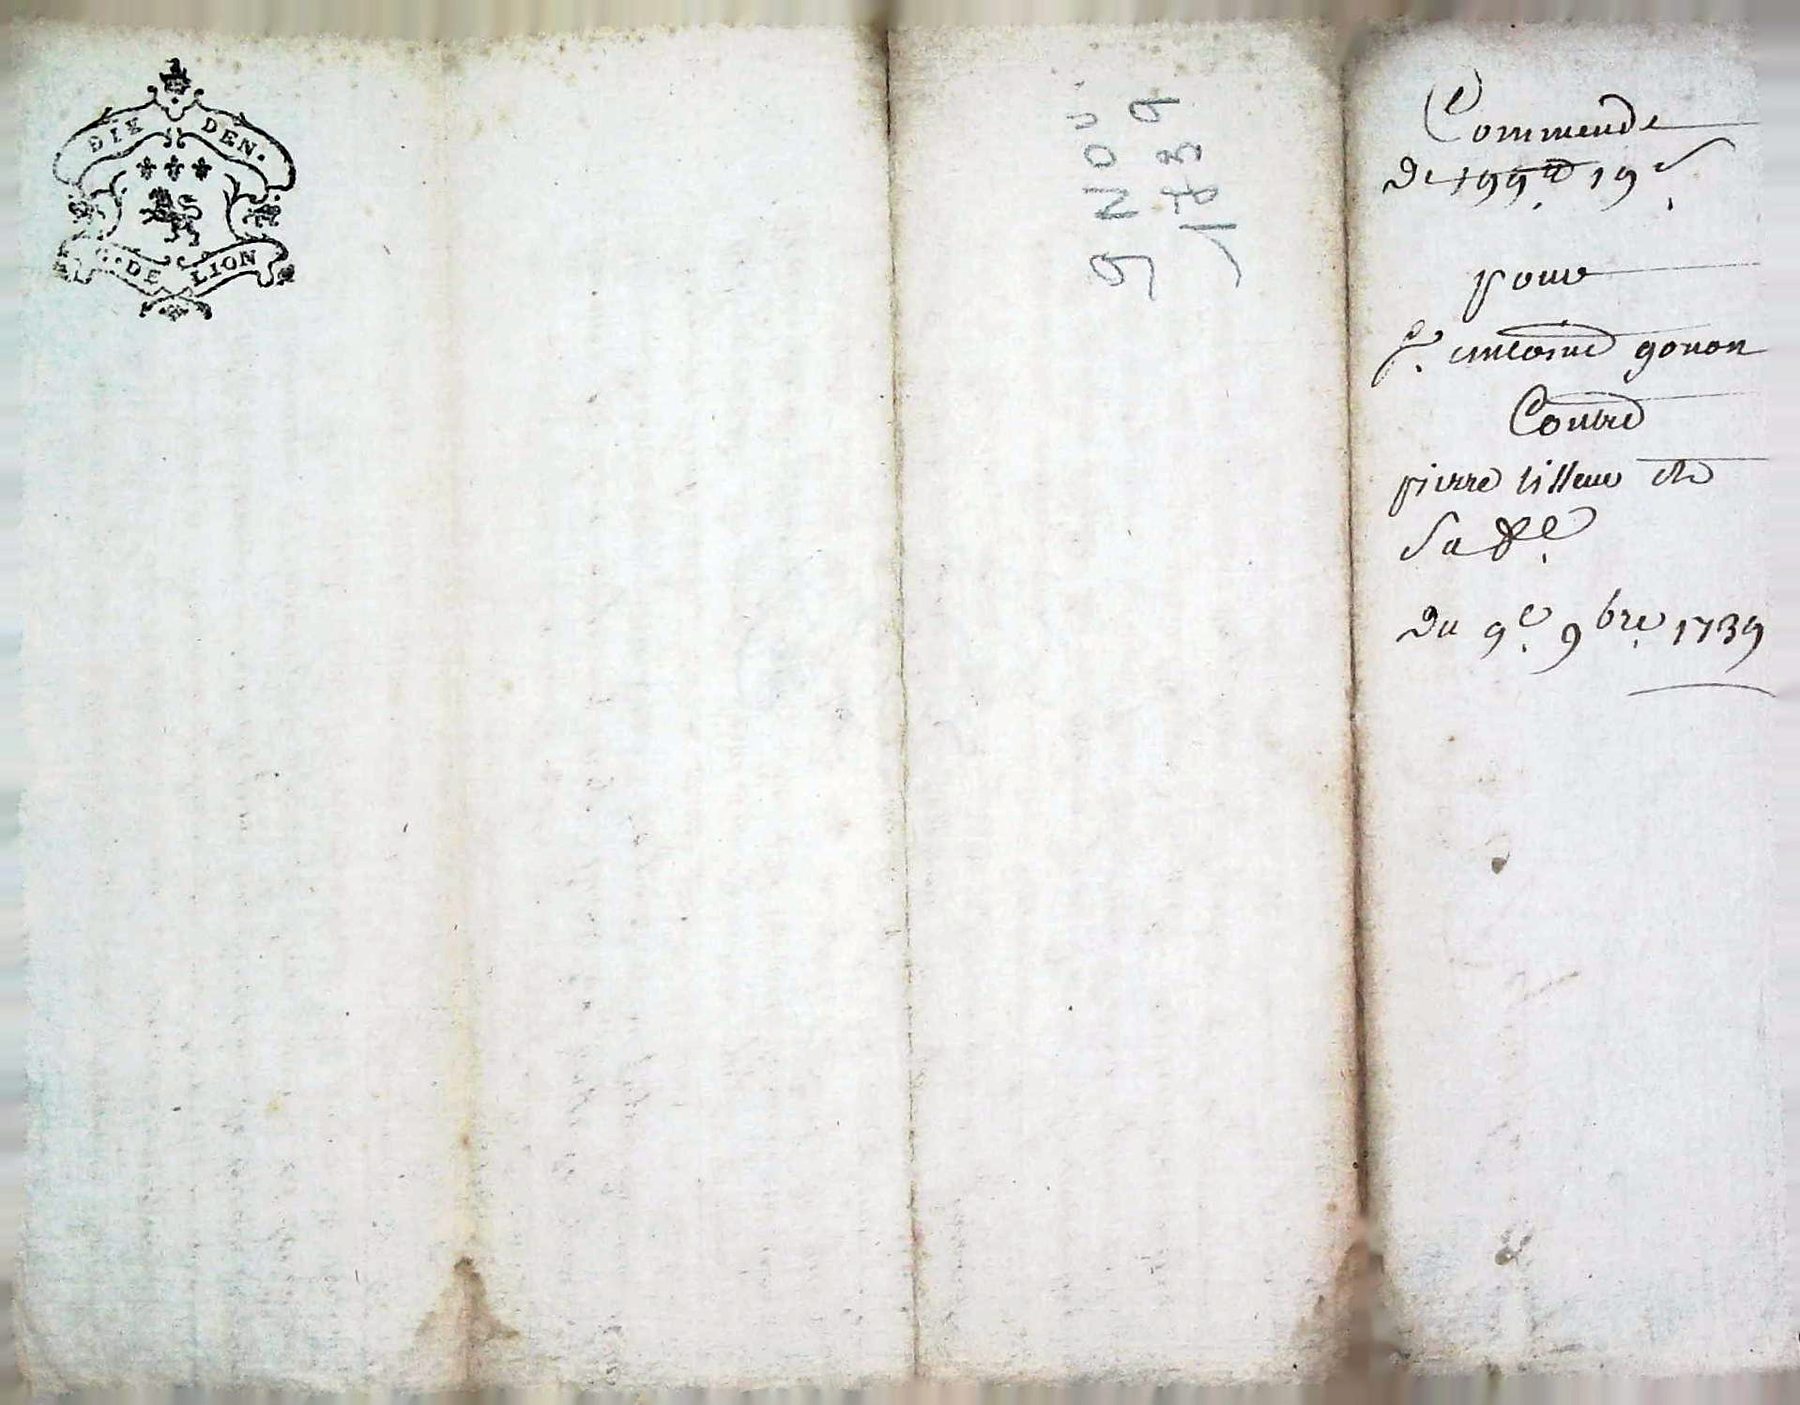 DIX DEN.
G. DE LION
9 NOV
1739
Commende
De 199# 19s
pour
Sr. antoine gonon
Contre
pierre tisseur et
Sa fe.
Du 9e. 9bre. 1739